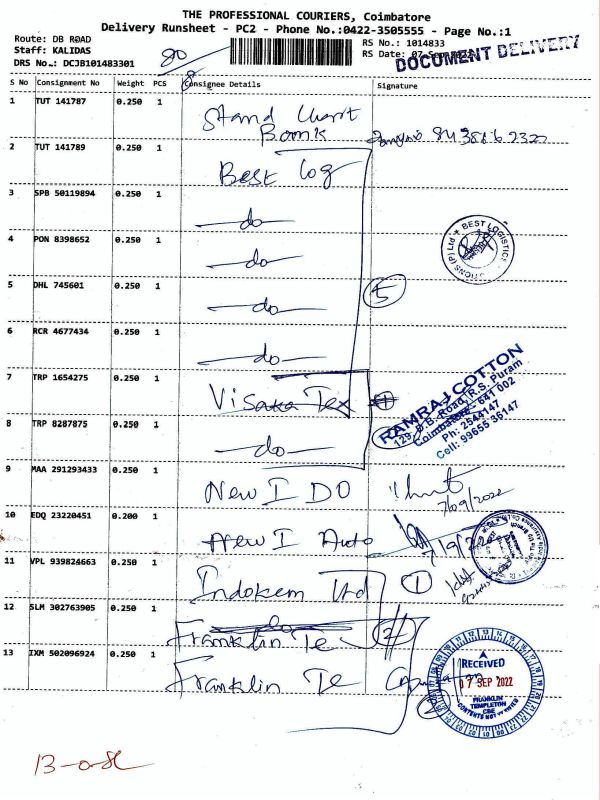 THE PROFESSIONAL COURIERS, Coimbatore
Delivery Runsheet - PC2 - Phone No.:0422-3505555 - Page No.:1
Route: DB ROAD
Staff: KALIDAS
DRS No.: DCJB101483301
80
RS No.: 1014833
RS Date: 07-Sep
DOCUMENT DELIVERY
S No Consignment No Weight PCS Consignee Details Signature
1 TUT 141787 0.250 1 Stand Chart Bank
2 TUT 141789 0.250 1 Best Log
3 SPB 50119894 0.250 1 —do—
4 PON 8398652 0.250 1 —do—
BEST LOGISTICS
(P) Ltd
5 DHL 745601 0.250 1 —do— 5
6 RCR 4677434 0.250 1 —do—
7 TRP 1654275 0.250 1 Visaka Tex 1
RAMRAJ COTTON
129, D.B. Road, R.S. Puram
Coimbatore - 641 002
Ph: 2544147
Cell: 99655 36147
8 TRP 8287875 0.250 1 —do—
9 MAA 291293433 0.250 1 New I DO
7/09/2022
10 EDQ 23220451 0.200 1 New I Auto
11 VPL 939824663 0.250 1 Indokem Ltd 1
12 SLM 302763905 0.250 1 Franklin Te 2
13 IXM 502096924 0.250 1 Franklin Te
RECEIVED
07 SEP 2022
FRANKLIN
TEMPLETON
CBE
CONTENTS NOT VERIFIED